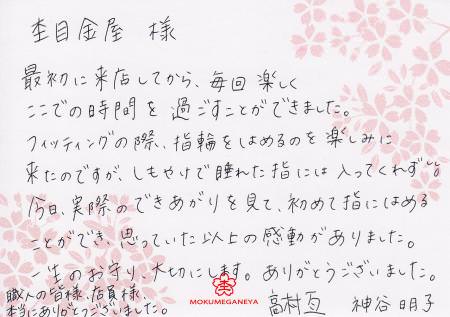 杢目金屋 様
最初に来店してから、毎回 楽しく
ここでの時間を 過ごすことができました。
フィッティングの際、指輪をはめるのを楽しみに
来たのですが、しもやけで腫れた指には入ってくれず。
今日、実際のできあがりを見て、初めて指にはめる
ことができ、思っていた以上の感動がありました。
一生のお守り、大切にします。ありがとうございました。
職人の皆様、店員様、
本当にありがとうございました。
MOKUMEGANEYA
高村亘 神谷明子